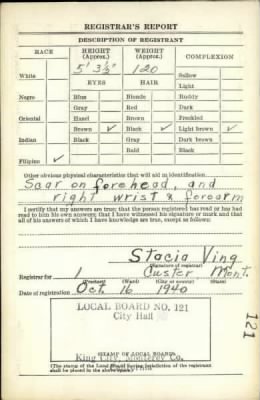 REGISTRAR'S REPORT
DESCRIPTION OF REGISTRANT
RACE
HEIGHT (Approx.)
WEIGHT (Approx.)
COMPLEXION
5' 3½"
120
White
EYES
HAIR
Sallow
Light
Negro
Blue
Blonde
Ruddy
Gray
Red
Dark
Oriental
Hazel
Brown
Freckled
Brown ✓
Black ✓
Light brown ✓
Indian
Black
Gray
Dark brown
Bald
Black
Filipino ✓
Other obvious physical characteristics that will aid in identification
Scar on forehead, and
right wrist & forearm
I certify that my answers are true; that the person registered has read or has had
read to him his own answers; that I have witnessed his signature or mark and that
all of his answers of which I have knowledge are true, except as follows:
Stacia Ving
(Signature of registrar)
Registrar for 1 Custer Mont.
(Precinct) (Ward) (City or county) (State)
Date of registration Oct. 16 1940
LOCAL BOARD NO. 121
City Hall
(STAMP OF LOCAL BOARD)
King City, Monterey Co.
(The stamp of the Local Board having jurisdiction of the registrant
shall be placed in the above space)
121